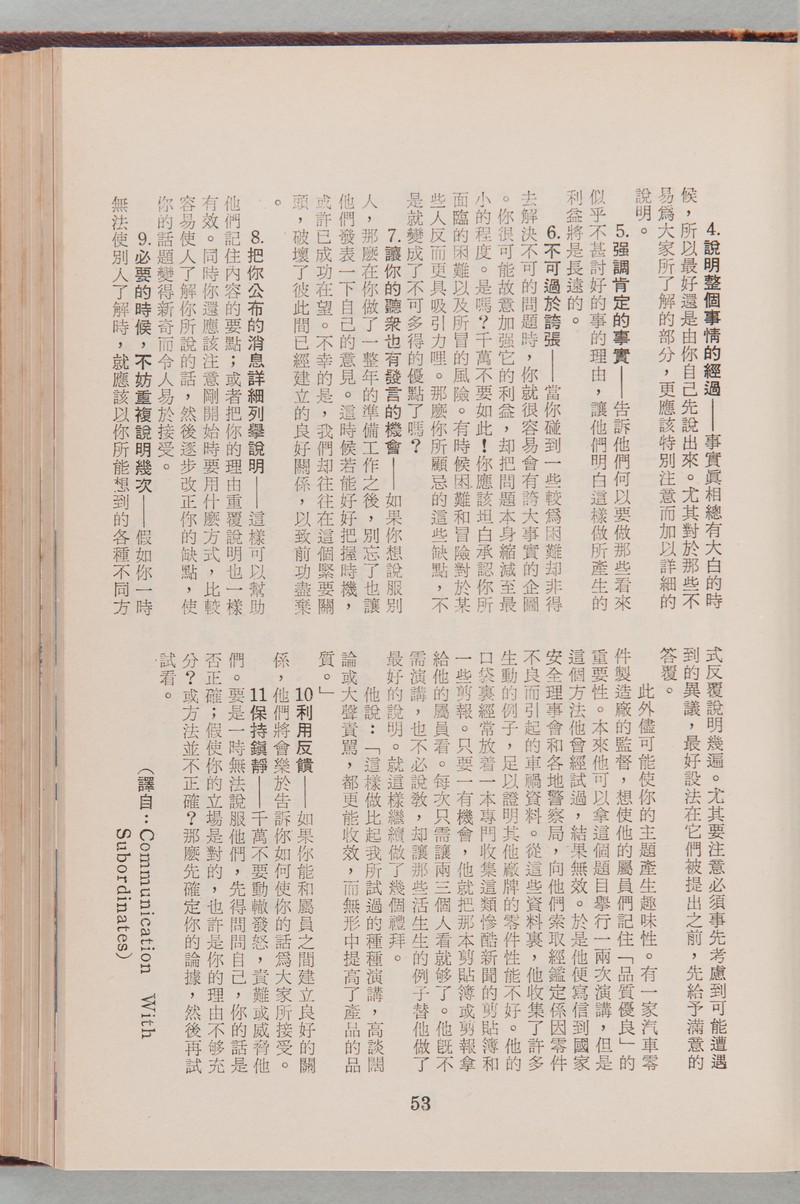 4.說明整個事情的經過——事實眞相總有大白的時
候，所以最好還是由你自己先說出來。尤其對於那些不
易爲大家所了解的部分，更應該特別注意而加以詳細的
說明。
5.强調肯定的事實——告訴他們何以要做那些看來
似乎不甚討好的事的理由，讓他們明白這樣做所產生的
利益將是長遠的。
6.不可過於誇張——當你碰到一些較爲困難却非得
去解決不可的問題時，你就很容易會有誇大事實的企圖
。你很可能故意加强它的利益，却把問題本身縮減至最
小的程度。是嗎？千萬不要如此！你應該坦白承認你所
面臨的困難以及所冒的風險。有時候困難和冒險對於某
些人反而更具吸引力哩。那麽你所顧忌的這些缺點，不
是就變成了不可多得的優點了嗎？
7.讓你的聽衆也有發言的機會——如果你想說服別
人，那麽在你做了一整年的準備工作之後，別忘了也讓
他們發表一下自己的意見。這時候若能好好把握時機，
或許已成功在望。不幸的是，我們却往往在這個緊要關
頭，破壞了彼此間已經建立的良好關係，以致前功盡棄
。
8.把你公布的消息詳細列舉說明——這樣可以幫助
他們記住內容的要點；或者把你的理由重覆說明也一樣
有效。同時你還應該注意剛開始時要用什麽方式，比較
容易使人了解你所說的話，然後逐步改正你的缺點，使
你的話題變得新奇而令人易於接受。
9.必要的時候，不妨重複說明幾次——假如你一時
無法使別人了解時，就應該以你所能想到的各種不同方
式反覆說明幾遍。尤其要注意必須事先考慮到可能遭遇
到的異議，最好設法在它們被提出之前，先給予滿意的
答覆。
此外儘可能使你的主題產生趣味性。有一家汽車零
件製造廠的監督，想使他的屬員們記住「品質優良」的
重要性。本來他可以拿這個題目舉行一兩次演講，但是
這個方法他曾經試過，結果無效。於是他便寫信到國家
安全理事會和各地警察局，向他們索取經鑑定係因零件
不良而引起的車禍資料。從這些資料裏，他收集了許多
生動的例子，足以證明其他廠牌的零件性能不好。他的
口袋裏經常放着一本專門收集這類慘酷新聞的剪貼簿和
一些剪報。只要一有機會，他就把那本剪貼簿或剪報拿
給他的屬員看。每次只需讓兩三個人看就够了。他旣不
需演講，也不必說敎，却讓那些活生生的例子替他做了
最好的說明。就這樣繼續做了幾個禮拜。
他說：「這樣做比起我所試過的種種演講，高談闊
論或大聲責罵，都更能收效，而無形中提高了產品的品
質。」
10利用反饋——如果你能和屬員之間建立良好的關
係，他們將會樂於告訴你如何使你的話爲大家所接受。
11保持鎭靜——千萬不要動輒發怒，責難或威脅他
們。要是一時無法說服他們，先得問問自己，你的話是
否正確；假使你的立場是對的，也許是你的理由不够充
分？或方法並不正確？那麽先確定你的論據，然後再試
試看。
（譯自：Communication With
Subordinates）
53